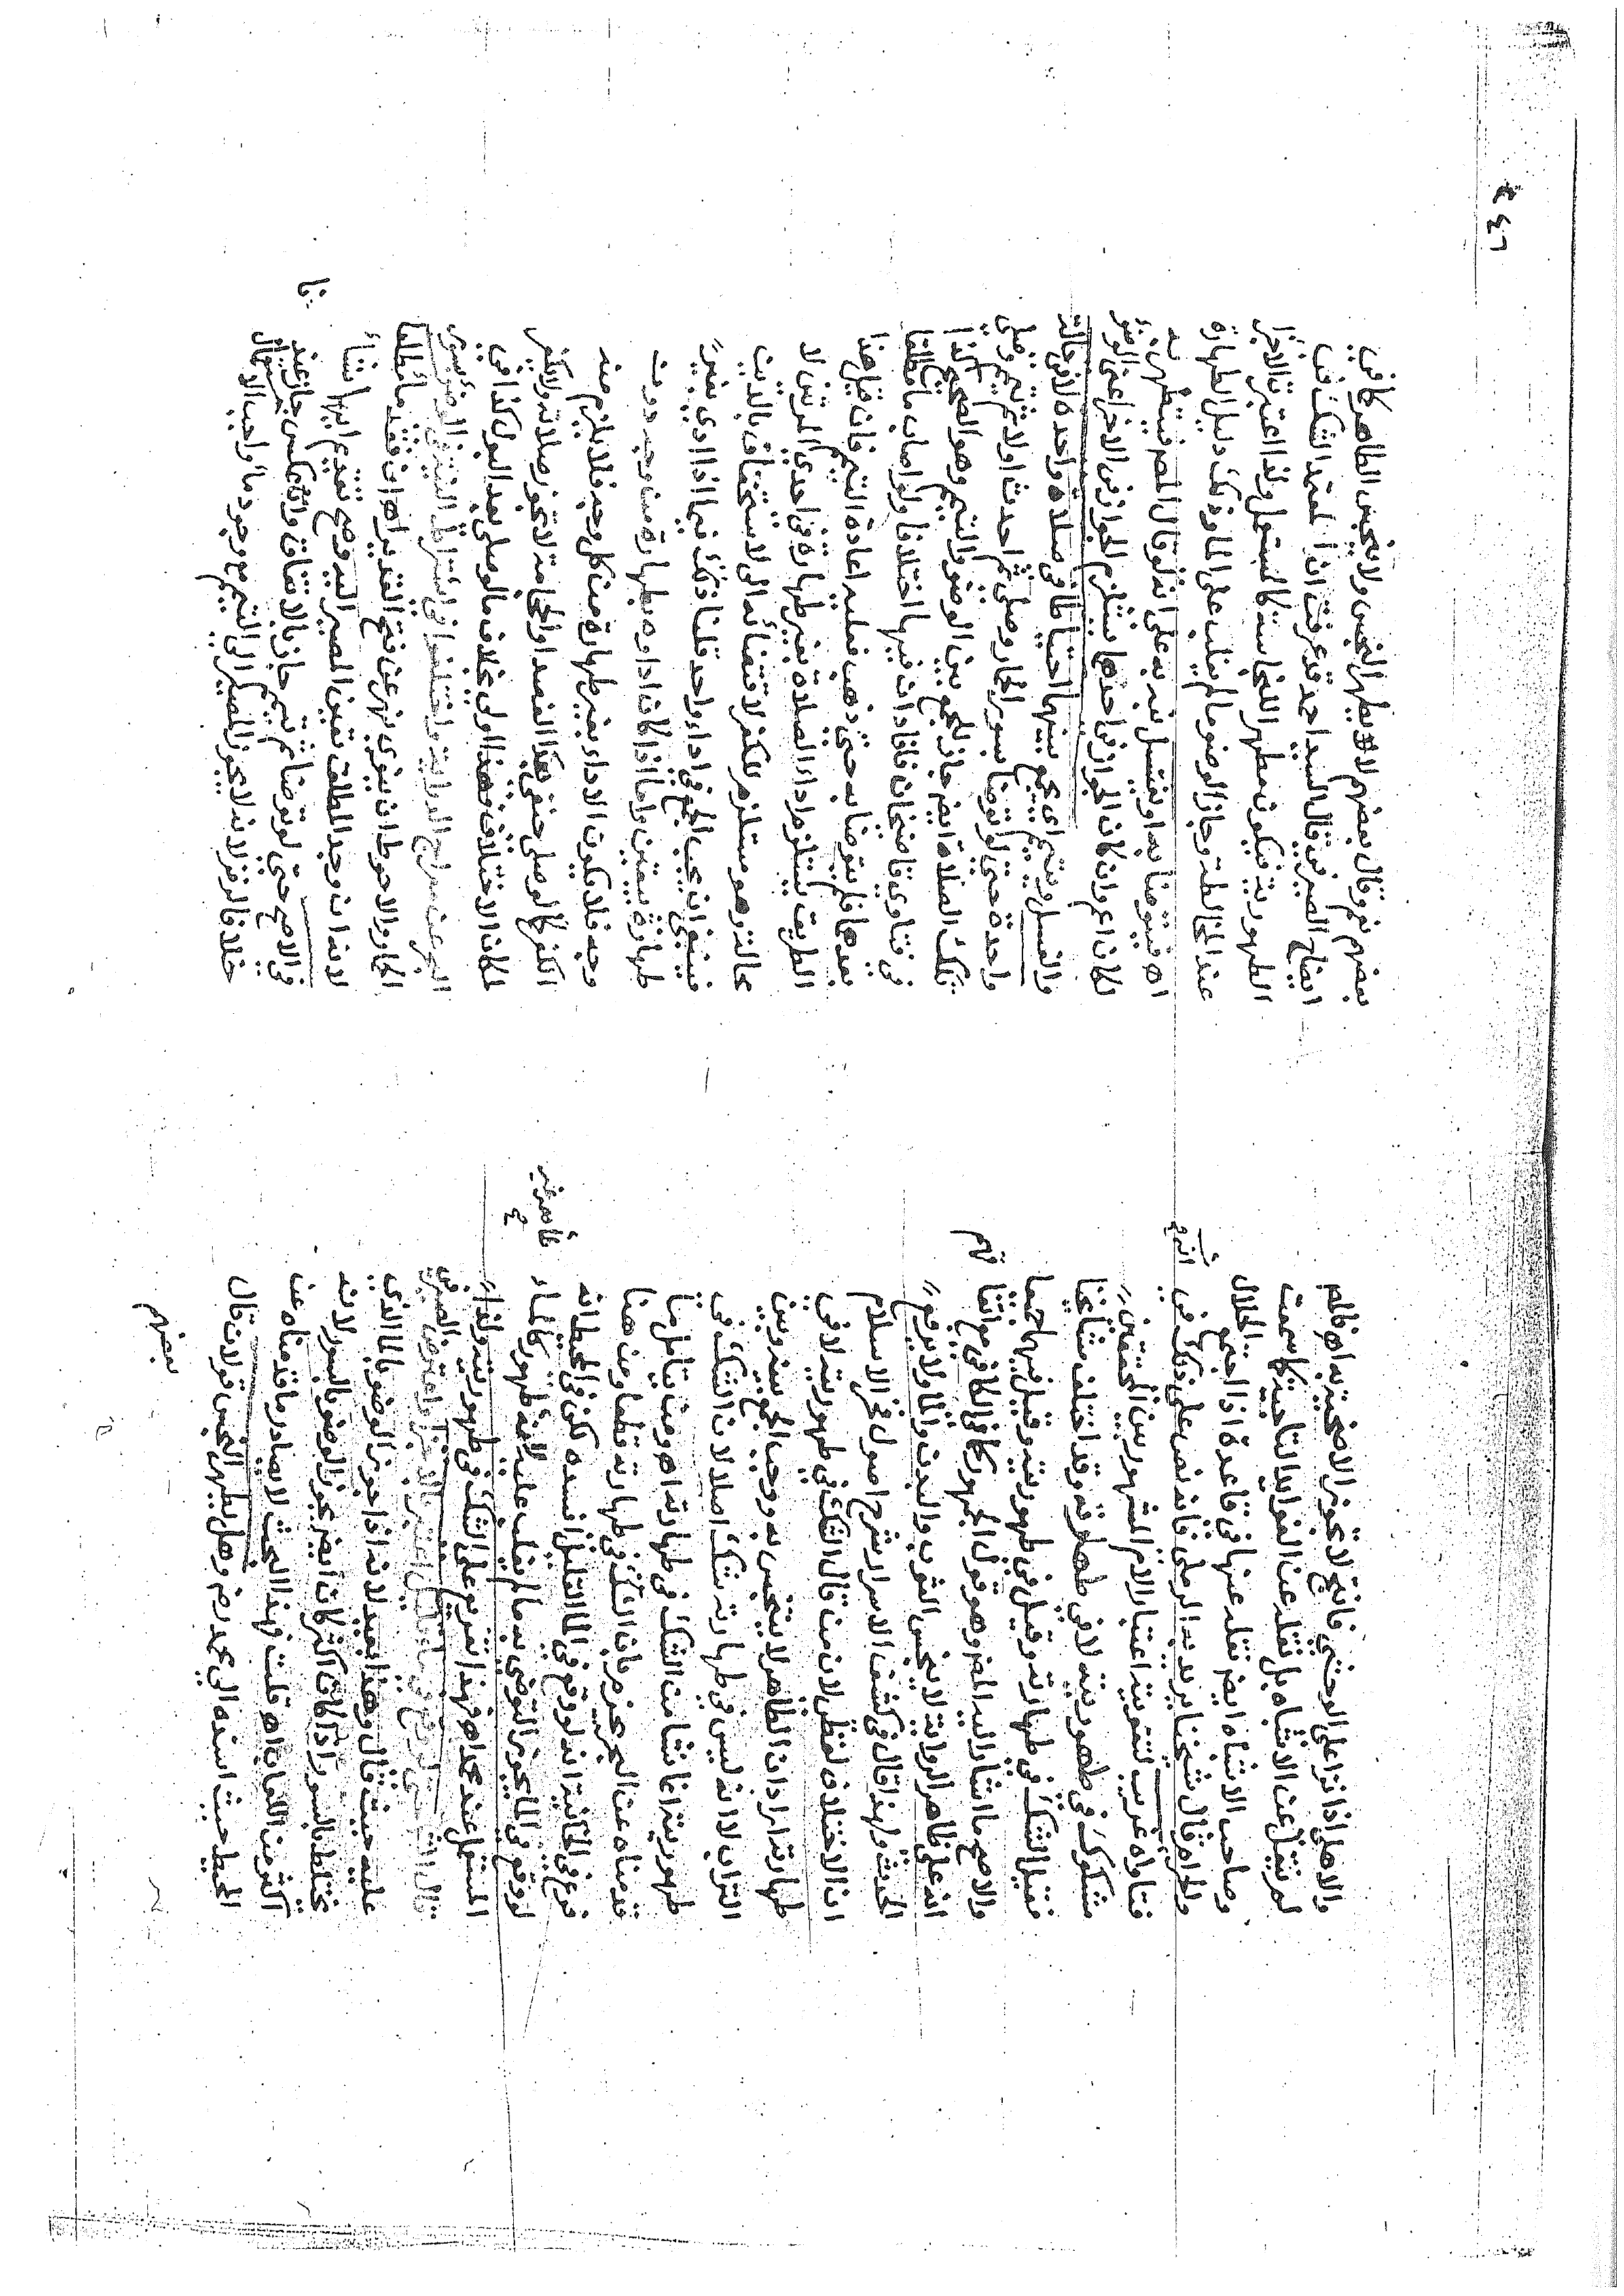 والاهلي اذا نزا على الوحشي فانتج لا تجوز الاضحية به اه فلم
لم ينقل عن الاشباه بل نقله عن الفوايد التاجية كما سمعت
وصاحب الاشباه ايض نقله عنها في قاعدة اذا اجتمع الحلال
والحرام قال شيخنا يريد به الرملي فانه نص على ذلك في
فتاواه غريب لتقوية اعتبار الام المشهور بين المحققين
مشكوك في طهوريته لا في طهارته وقد اختلف مشايخنا
فقيل الشك في طهارته وقيل في طهوريته وقيل فيهما جميعا
والاصح ما اشار اليه المص وهو قول الجمهور كما في الكافي موافقا
انه على ظاهر الرواية لا ينجس الثوب والبدن والماء ولا يرفع
الحدث ولهذا قال في كشف الاسرار شرح اصول فخر الاسلام
ان الاختلاف لفظي لان من قال الشك في طهوريته لا في
طهارته اراد ان الطاهر لا يتنجس به ووجب الجمع بينه وبين
التراب لا انه ليس في طهارته شك اصلا لان الشك في
طهوريته انما نشا من الشك في طهارته اه ومنه
قدمناه عن البحر بان الشك في طهارته قطعا ومن هنا
فرع في الخانية انه لو وقع في الماء القليل افسده لكن في المحيط انه
لو وقع في الماء يجوز التوضي به ما لم يغلب عليه لانه طهور كالماء
المستعمل عند محمد اه فهذا تفريع على الشك في طهوريته
عليه حيث قال وهذا يفيد لانه اذا جوز الوضوء بالماء الذي
مختلط بالسور اذا كان اكثر كان ايض يجوز الوضوء بالسور لانه
اكثر من اللعاب اه قلت فهذا البحث لا يصادر ما قدمناه عن
المحيط حيث اسنده الى محمد رض وهل يطهر النجس قولان قال
بعضهم
بعضهم نعم وقال بعضهم لا لا يطهر النجس ولا ينجس الطاهر كما في
ايضاح الصيرفي قال السيد احمد قد عرفت ان المعتمد الشك في
الطهورية فيكون مطهر النجاسة كالمستعمل ولذا اعتبرت الاجزا
عند المخالطة وجاز الوضوء ما لم يغلب على الماء وذلك دليل الطهارة
اه فيتوضا به او يغتسل نبه به على انه لو قال المص فيتطهر به
لكان اعم وان كان الجواز في احدهما يستلزم الجواز في الاخر اعني الوضوء
والغسل ويتيمم اي يجمع بينهما احتياطا في صلاة واحدة لا في حالة
واحدة حتى لو توضا بسور الحمار وصلى ثم احدث اولا ثم تيمم وصلى
تلك الصلاة ايض جاز الجمع بين الوضوء والتيمم وهو الصحيح كذا
في فتاوى قاضيخان فافاد ان فيهما اختلافا ولو اصاب ماء مطلقا
بعدها فلم يتوضا به حتى ذهب فعليه اعادة التيمم فان قيل هذا
الطريق يستلزم اداء الصلاة بغير طهارة في احدى المرتين لا
محالة وهو مستلزم للكفر لاقتضائه الى الاستخفاف بالدين
فينبغي ان يجب الجمع في اداء واحد قلنا ذلك فيما اذا ادى بغير
طهارة بيقين واما اذا كان اداوه بطهارة من وجه دون
وجه فلا يكون الاداء بغير طهارة من كل وجه فلا يلزم منه
الكفر كما لو صلى حنفي بعد الفصد او الحجامة لا تجوز صلاته ولا يكفر
لمكان الاختلاف فهذا اولى بخلاف ما لو صلى بعد البول كذا في
البحر عن معراج الدراية واختلفوا في اشتراط النية في الوضوء بسور
الحمار والاحوط ان ينوي نهر عن فتح القدير اه ان فقد ماء مطلقا
لانه ان وجد المطلق تعين المصير اليه وصح تقديم ايهما شاء
في الاصح حتى لو توضا ثم تيمم جاز بالاتفاق وان عكس جاز عند
خلافا لزفر لانه لا يجوز المصير الى التيمم مع وجود ماء واجب الاستعمال